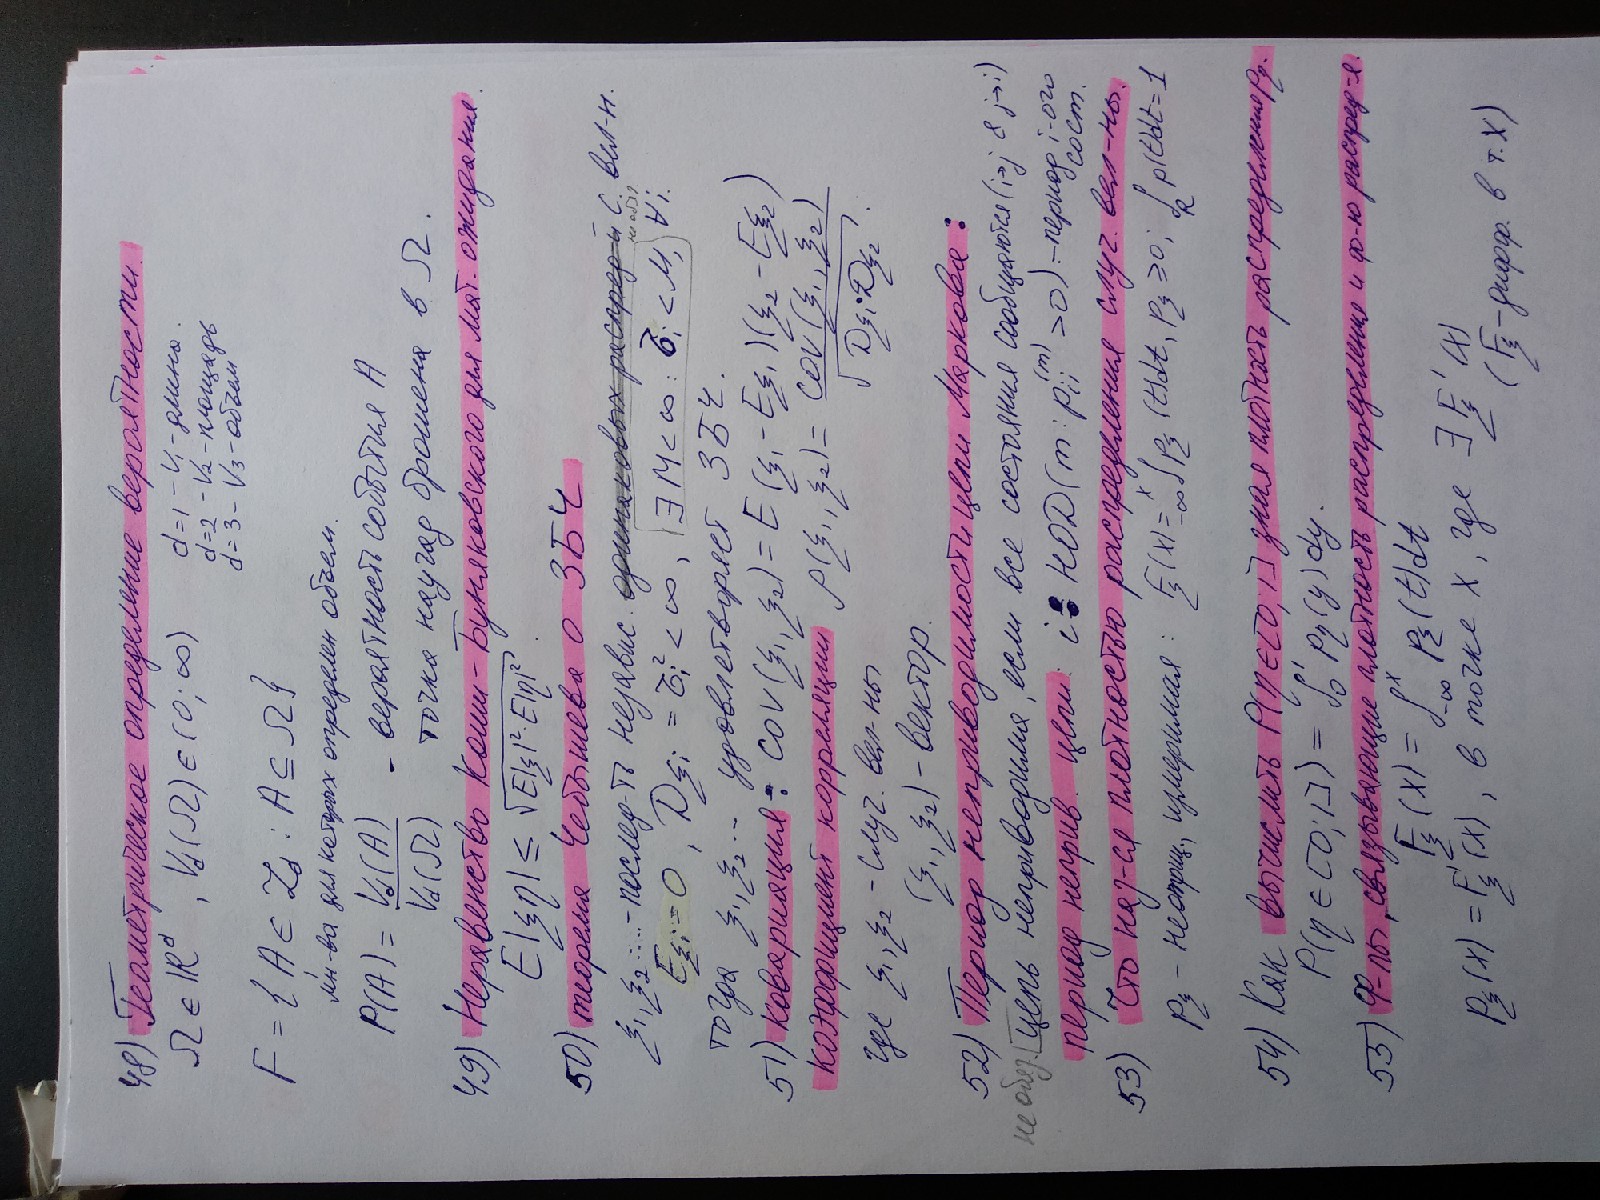 48) Геометрическое определение вероятности.
Ω ∈ ℝᵈ, V_d(Ω) ∈ (0; ∞)
d=1 – V₁ – длина.
d=2 – V₂ – площадь
d=3 – V₃ – объем
F = { A ∈ 𝓛_d : A ⊆ Ω }
мн-ва для которых определен объем.
P(A) = V_d(A) / V_d(Ω) - вероятность события A
точка наугад брошена в Ω.
49) Неравенство Коши-Буняковского для мат. ожидания.
E|ξη| ≤ √(E|ξ|²·E|η|²).
50) теорема Чебышева о ЗБЧ
ξ₁, ξ₂ ... - послед-ть независ. одинаковых распред-й с. вел-н.
не обяз.
Eξᵢ = 0, Dξᵢ = σᵢ² < ∞, ∃ M < ∞ : σᵢ < M, ∀i.
тогда ξ₁, ξ₂ ... удовлетворяет ЗБЧ.
51) ковариация: cov(ξ₁, ξ₂) = E(ξ₁ - Eξ₁)(ξ₂ - Eξ₂)
коэффициент корреляции ρ(ξ₁, ξ₂) = cov(ξ₁, ξ₂) / √(Dξ₁·Dξ₂).
где ξ₁, ξ₂ - случ. вел-ны
(ξ₁, ξ₂) - вектор.
52) Период неприводимости цепи Маркова:
не обяз. Цепь неприводимая, если все состояния сообщаются (i→j & j→i)
период неприв. цепи. i: НОД(m: pᵢᵢ⁽ᵐ⁾ > 0) - период i-ого сост.
53) Что наз-ся плотностью распределения случ. вел-ны.
P_ξ - неотриц, измеримая : F_ξ(x) = ₋∞∫ˣ P_ξ(t)dt, P_ξ ≥ 0; ∫_R p(t)dt = 1
54) Как вычислить P(η ∈ [0,1]) зная плотность распределения P_η.
P(η ∈ [0;1]) = ∫₀¹ P_η(y)dy.
55) Ф-лы, связывающие плотность распределения и ф-ю распред-я.
F_ξ(x) = ∫₋∞ˣ P_ξ(t)dt
P_ξ(x) = F'_ξ(x), в точке x, где ∃ F_ξ'(x)
(F_ξ - дифф. в т. x)